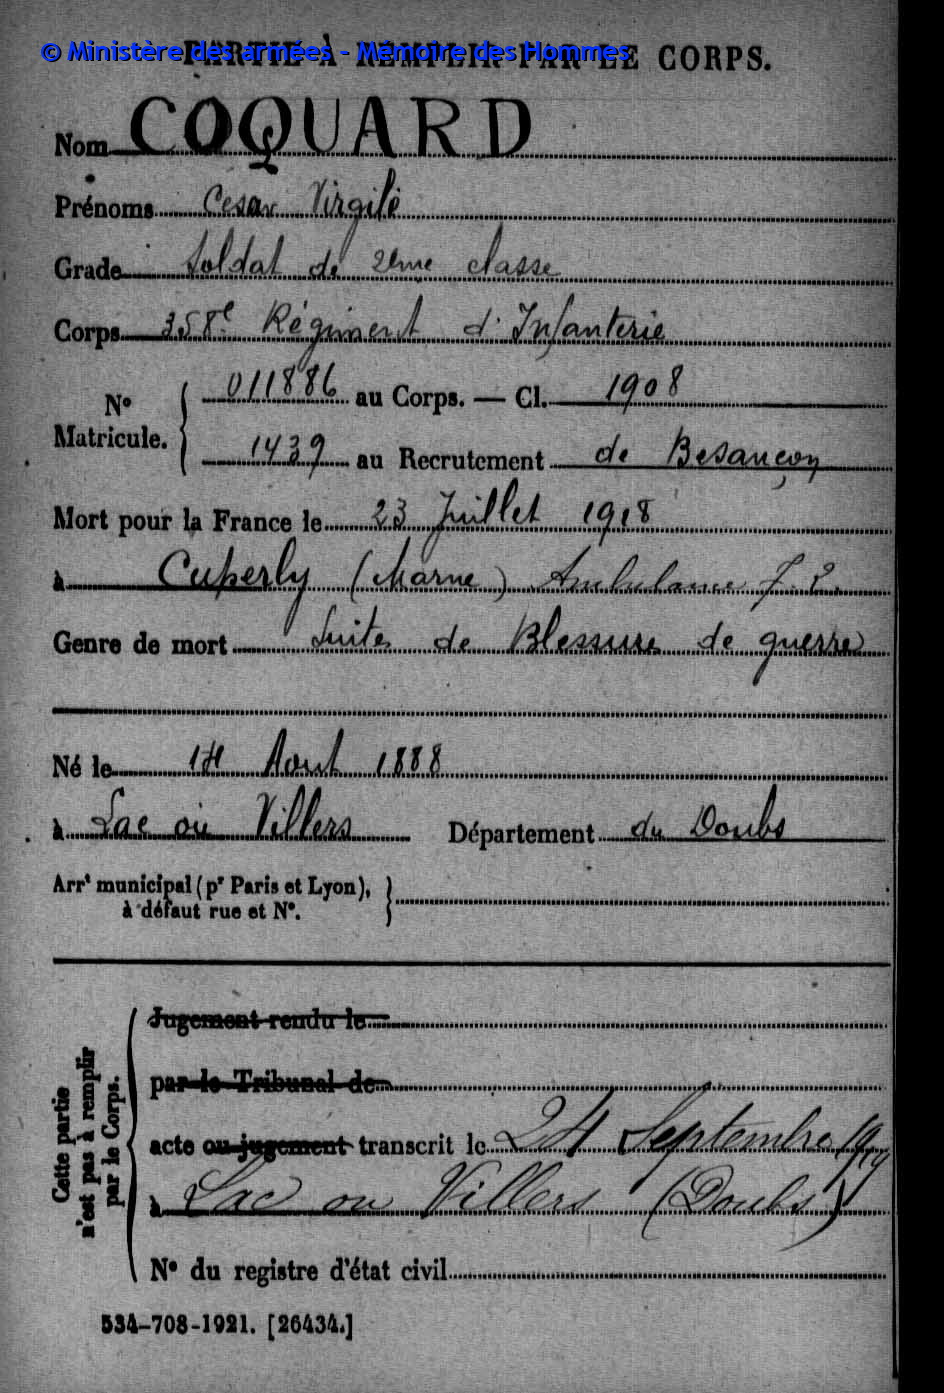 © Ministère des armées - Mémoire des Hommes
PARTIE À REMPLIR PAR LE CORPS.
Nom COQUARD
Prénoms Cesar Virgile
Grade Soldat de 2eme classe
Corps 358e Régiment d'Infanterie
N° Matricule. { 011886 au Corps. — Cl. 1908
1439 au Recrutement de Besançon
Mort pour la France le 23 Juillet 1918
à Cuperly (Marne) Ambulance 7-2.
Genre de mort Suites de Blessure de guerre
Né le 14 Aout 1888
à Lac ou Villers Département du Doubs
Arrt municipal (pr Paris et Lyon),
à défaut rue et N°.
Cette partie
n'est pas à remplir
par le Corps.
Jugement rendu le
par le Tribunal de
acte ou jugement transcrit le 24 Septembre 1919
à Lac ou Villers (Doubs)
N° du registre d'état civil
534-708-1921. [26434.]